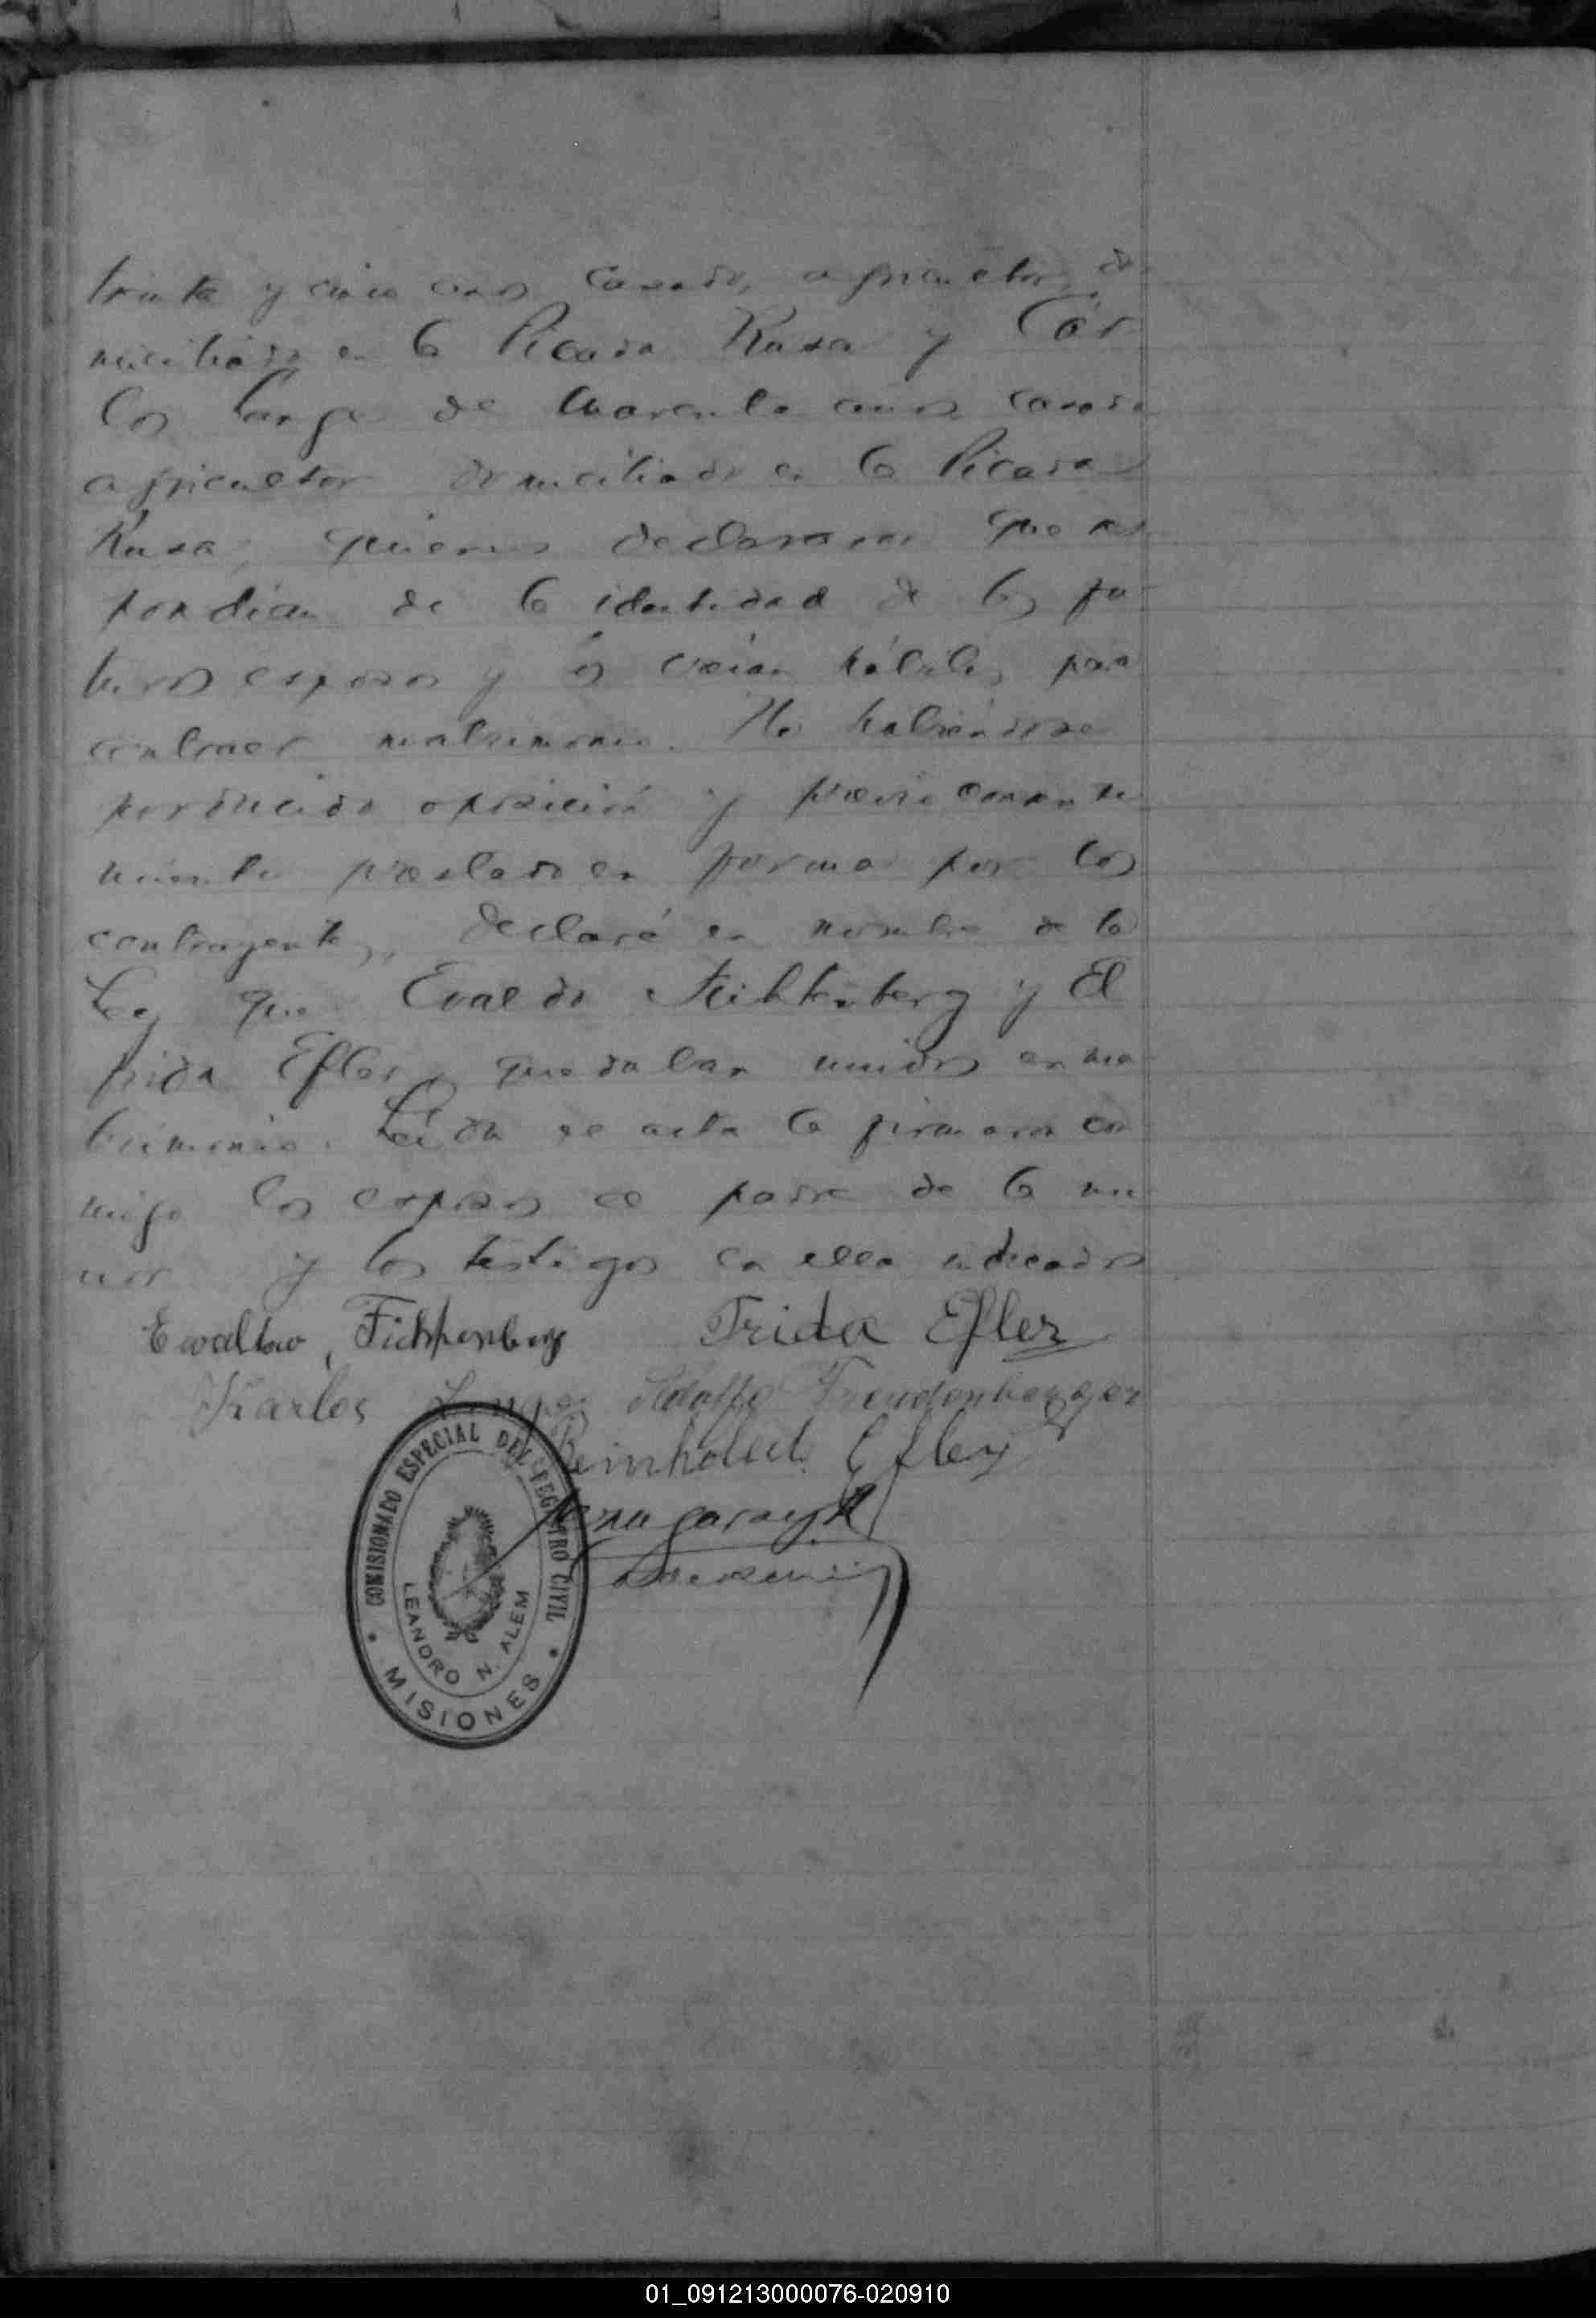 treinta y cinco años casado, agricultor, do-
miciliado en la Picada Rusa y Car
los Lange de cuarenta años casado
agricultor domiciliado en la Picada
Rusa, quienes declararon que res
pondian de la identidad de los fu-
turos esposos y los creian hábiles para
contraer matrimonio. No habiéndose
producido oposición y previo consenti
miento prestado en forma por los
contrayentes, declaré en nombre de la
Ley que Evaldo Fichtenberg y El
frida Efler, quedaban unidos en ma-
trimonio. Leida el acta la firmaron con
migo los esposos el padre de la me
nor y los testigos en ella indicados
Fichtenberg Frida Efler
Karlos Lange Adolfo Freudenberger
Reinholdt Efler
COMISIONADO ESPECIAL DEL REGISTRO CIVIL
LEANDRO N. ALEM
MISIONES
01_091213000076-020910